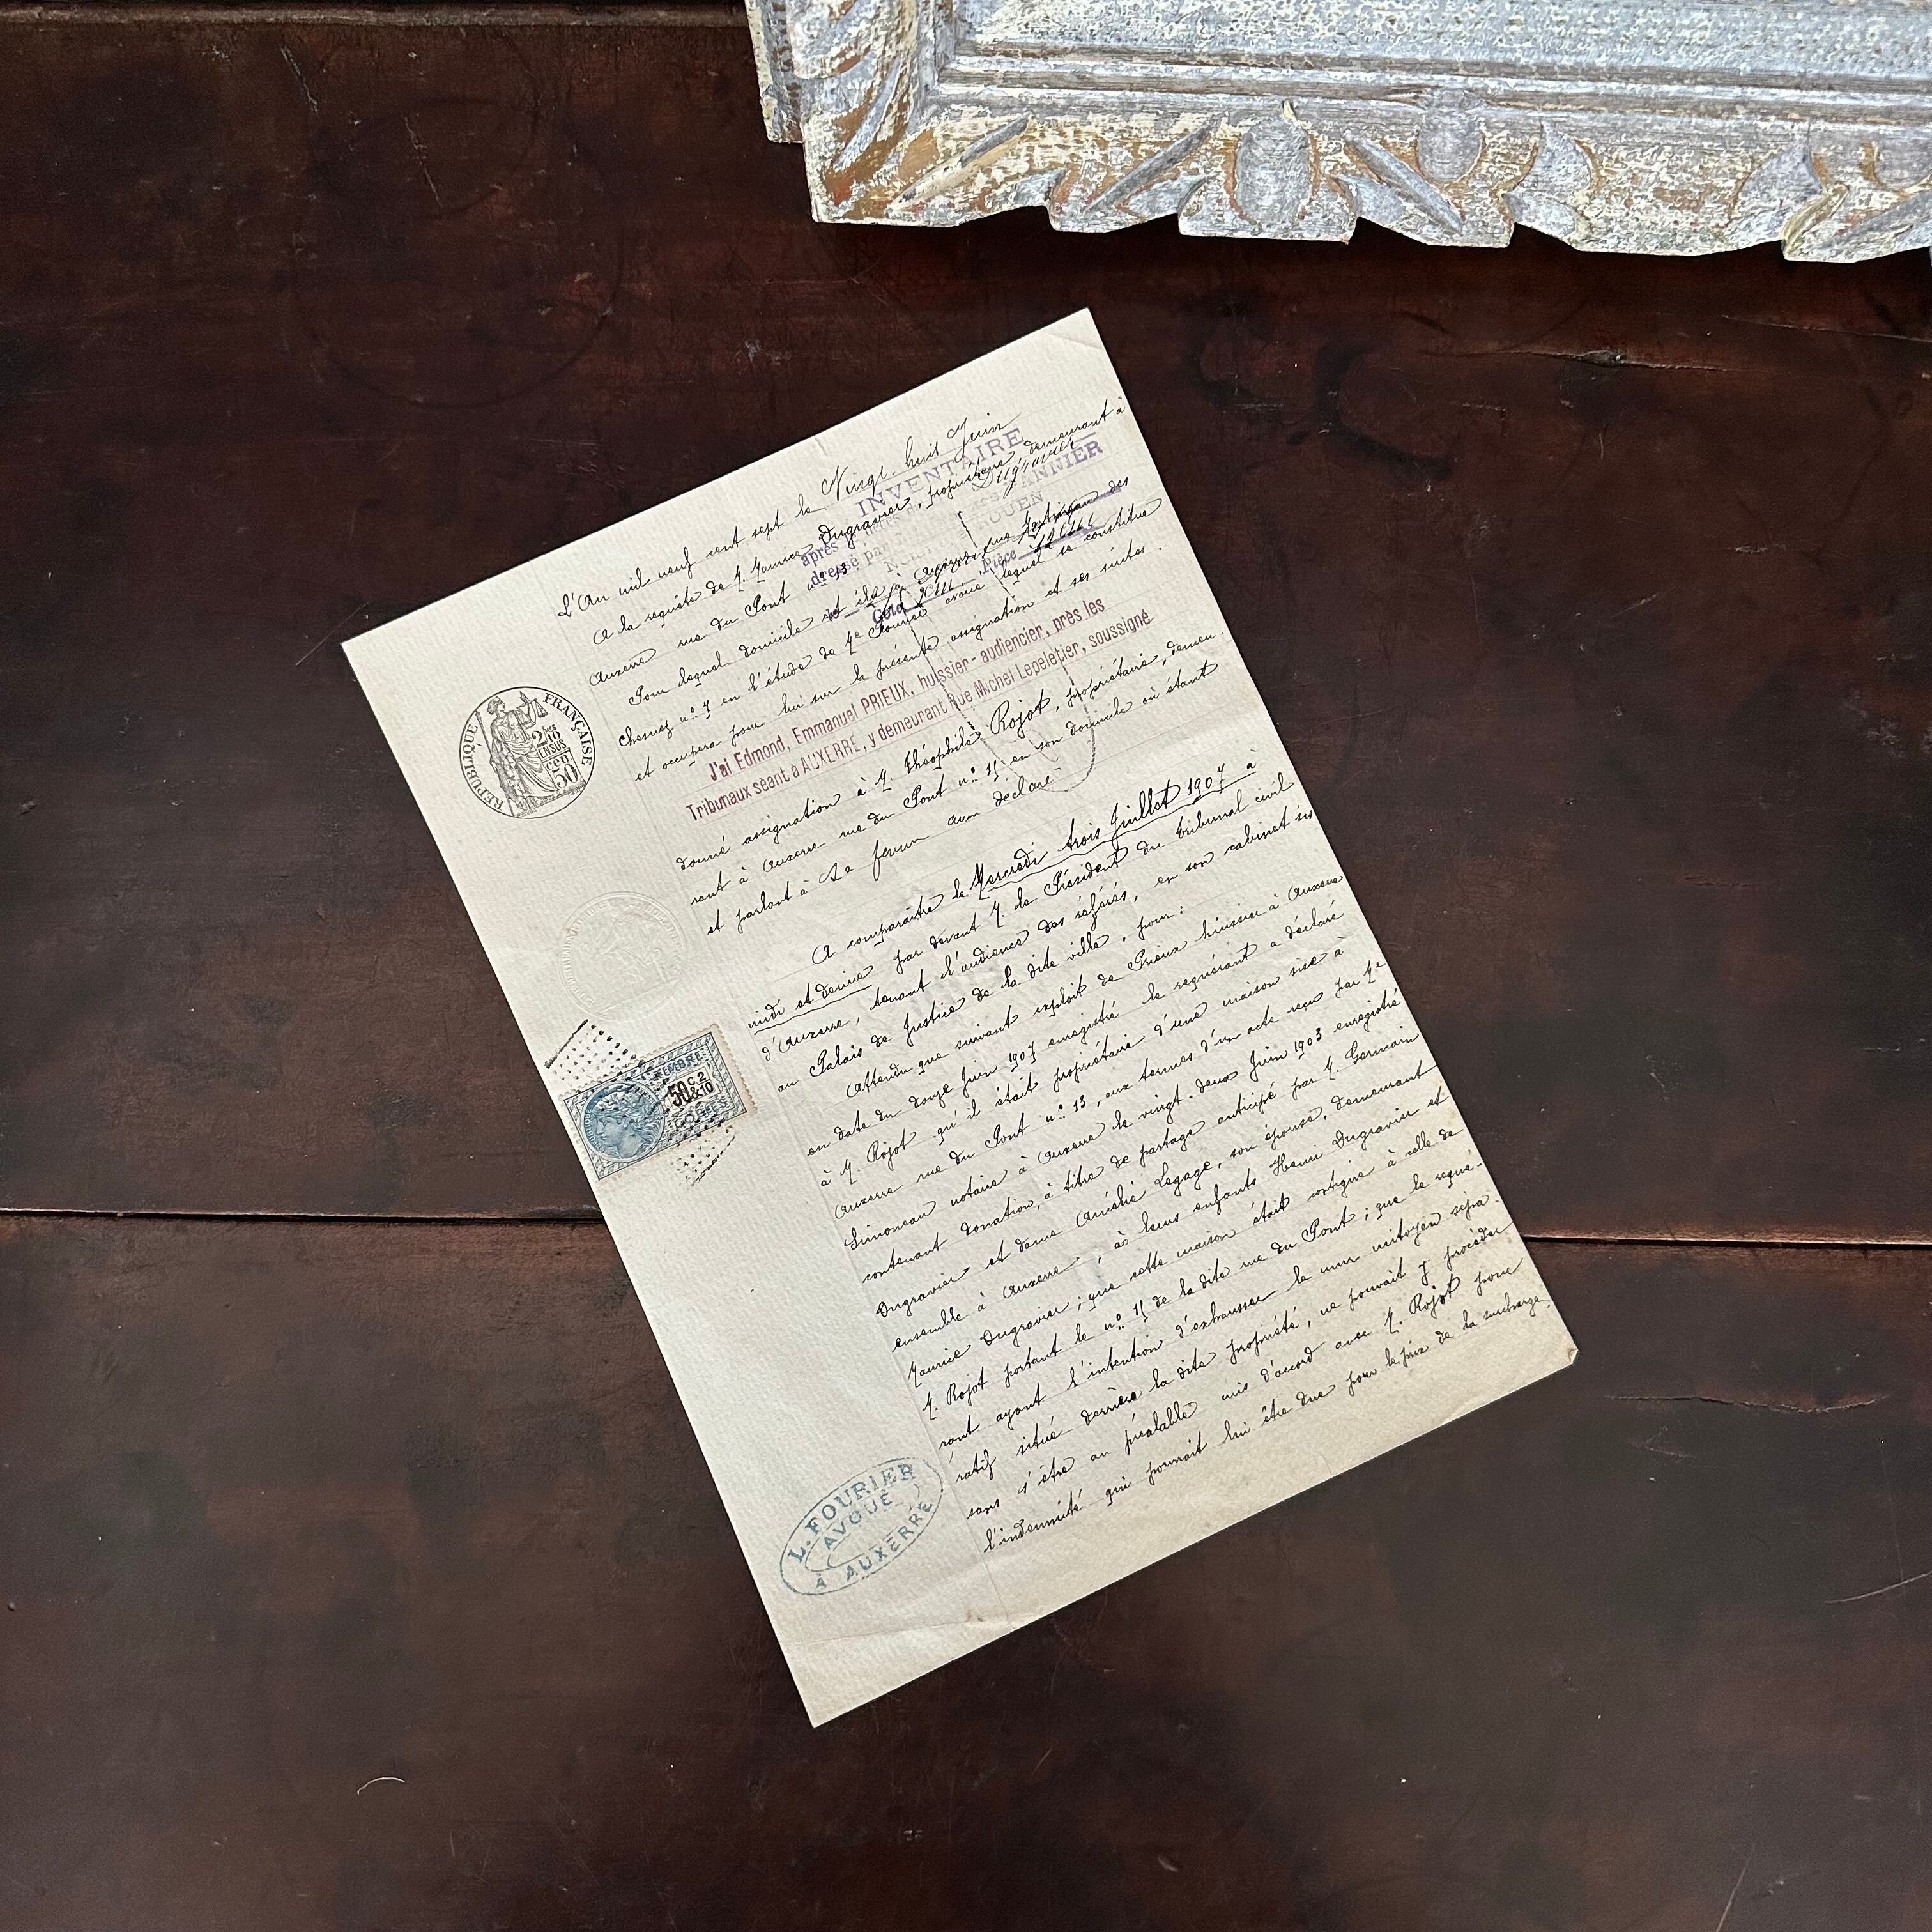 L'An mil neuf cent sept le Vingt-huit Juin
A la requête de M. Maurice Dugravier, propriétaire, demeurant à
Auxerre rue du Pont n° 13
INVENTAIRE
après
dressé par
ROUEN
Pour lequel domicile est élu à Auxerre rue
Cote
Pièce
n° 7 en l'étude de Me Fourier avoué lequel se constitue
et occupera pour lui sur la présente assignation et ses suites.
J'ai Edmond, Emmanuel PRIEUX, huissier-audiencier, près les
Tribunaux séant à AUXERRE, y demeurant Rue Michel Lepeletier, soussigné
donné assignation à M. Théophile Rojot, propriétaire, demeu-
rant à Auxerre rue du Pont n° 11 en son domicile où étant
et parlant à sa femme ainsi déclaré
A comparaître le Mercredi trois Juillet 1907 à
midi et demie par devant M. le Président du tribunal civil
d'Auxerre, tenant l'audience des référés, en son cabinet sis
au Palais de Justice de la dite ville, pour:
Attendu que suivant exploit de Prieux huissier à Auxerre
en date du douze Juin 1907 enregistré le requérant a déclaré
à M. Rojot qu'il était propriétaire d'une maison sise à
Auxerre rue du Pont n° 13, aux termes d'un acte reçu par Me
Simoneau notaire à Auxerre le vingt-deux Juin 1903 enregistré
contenant donation, à titre de partage anticipé par M. Germain
Dugravier et dame Amélie Legage, son épouse, demeurant
ensemble à Auxerre, à leurs enfants Henri Dugravier et
Maurice Dugravier; que cette maison était contiguë à celle de
M. Rojot portant le n° 11 de la dite rue du Pont; que le requé-
rant ayant l'intention d'exhausser le mur mitoyen sépa-
ratif situé derrière la dite propriété, ne pouvait y procéder
sans s'être au préalable mis d'accord avec M. Rojot pour
l'indemnité qui pourrait lui être due pour le prix de la surcharge
RÉPUBLIQUE FRANÇAISE
2/10
EN SUS
50
TIMBRE
50 C. 2
&10
L. FOURIER
AVOUÉ
À AUXERRE